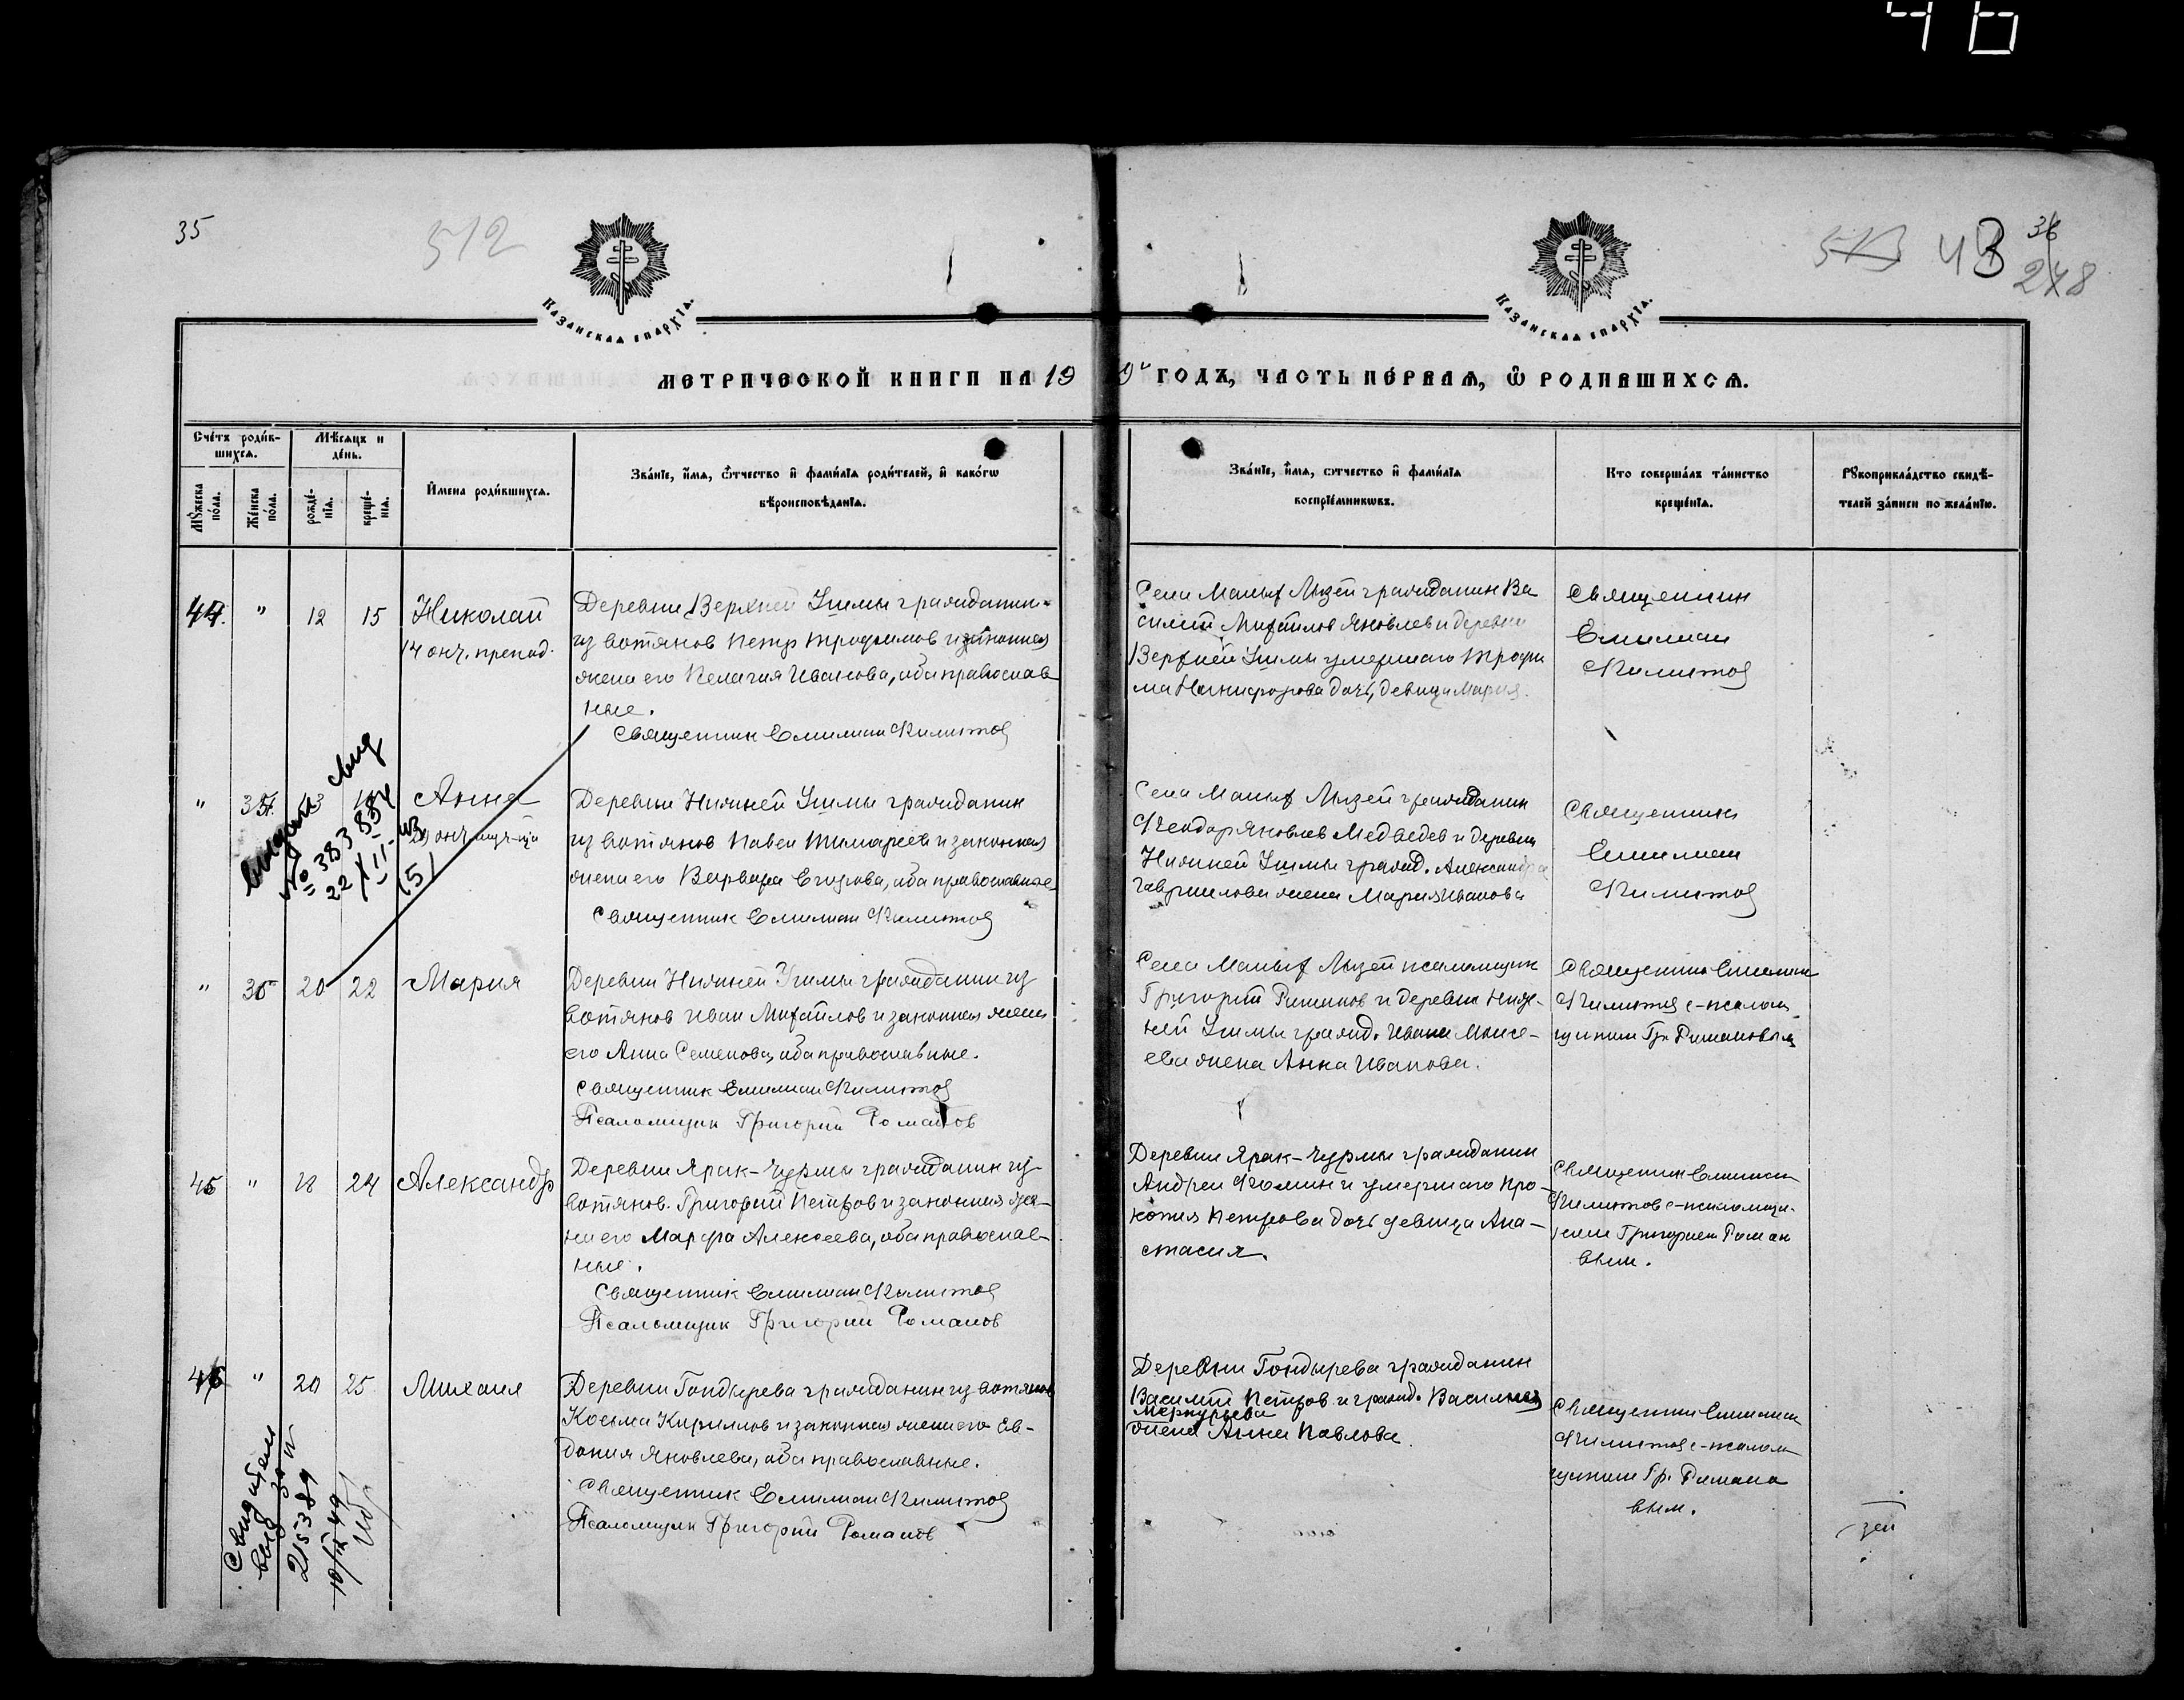 46
35
512
513 43 36
278
Казанскаѧ епархїѧ.
Казанскаѧ епархїѧ.
МЕТРИЧЕСКОЙ КНИГИ НА 19
9 ГОДЪ, ЧАСТЬ ПЕ́РВАѦ, Ѿ РОДИВШИХСѦ.
Сче́тъ роди́в-
шихсѧ.
Мѣ́сѧцъ и
де́нь.
Мꙋ́жеска
по́ла.
Же́нска
по́ла.
рожде́-
нїѧ.
креще́-
нїѧ.
И́мена роди́вшихсѧ.
Зва́нїе, и́мѧ, ѻ́тчество и҆ фами́лїѧ роди́телей, и҆ како́гѡ
вѣроисповѣ́данїѧ.
Зва́нїе, и҆́мѧ, отчество и҆ фами́лїѧ
воспрїе́мникѡвъ.
Кто соверша́лъ та́инство
креще́нїѧ.
Рꙋкоприкла́дство свидѣ́-
телей за́писи по жела́нїю.
44. " 12 15 Николай
14 окт. препод.
Деревни Верхней Уимы гражданин
из вотяков Петр Трофимов и законная
жена его Пелагия Иванова, оба православ
ные.
Священник Емилиан Филитов
Села Малых Лызей гражданин Ва
силий Михайлов Яковлев и деревни
Верхней Уимы умершаго Трофи
ма Никифорова дочь, девица Мария.
Священник
Емилиан
Филитов
" 34. 13 Анна
Выдано свид
№ 383884
22/II-
(5)
Деревни Нижней Уимы гражданин
из вотяков Павел Тимофеев и законная
жена его Варвара Егорова, оба православные
Священник Емилиан Филитов
Села Малых Лызей гражданин
Феодор Яковлев Медведев и деревни
Нижней Уимы гражд. Александра
Гавриилова жена Мария Иванова
Священник
Емилиан
Филитов
" 35 20 22 Мария
Деревни Нижней Уимы гражданин из
вотяков Иван Михайлов и законная жена
его Анна Семенова, оба православные.
Священник Емилиан Филитов
Псаломщик Григорий Романов
Села Малых Лызей псаломщик
Григорий Романов и деревни Ниж-
ней Уимы гражд. Ивана Моисе-
ева жена Анна Иванова.
Священник Емилиан
Филитов с псалом
щиком Гр. Романовым
45 " 18 24 Александр
Деревни Ярак-Чурмы гражданин из
вотяков Григорий Петров и законная же-
на его Марфа Алексеева, оба православ-
ные.
Священник Емилиан Филитов
Псаломщик Григорий Романов
Деревни Ярак-Чурмы гражданин
Андрей Фомин и умершаго Про-
копия Петрова дочь девица Ана-
стасия.
Священник Емилиан
Филитов с псаломщи-
ком Григорием Роман
вым.
46 " 20 25 Михаил
Деревни Гондырева гражданин из вотяков
Косьма Кириллов и законная жена его Ев-
докия Яковлева, оба православные.
Священник Емилиан Филитов
Псаломщик Григорий Романов
Деревни Гондырева гражданин
Василий Петров и гражд. Василия
Меркурьева
жена Анна Павлова.
Священник Емилиан
Филитов с псалом
щиком Гр. Романо
вым.
215389
10/IX 49